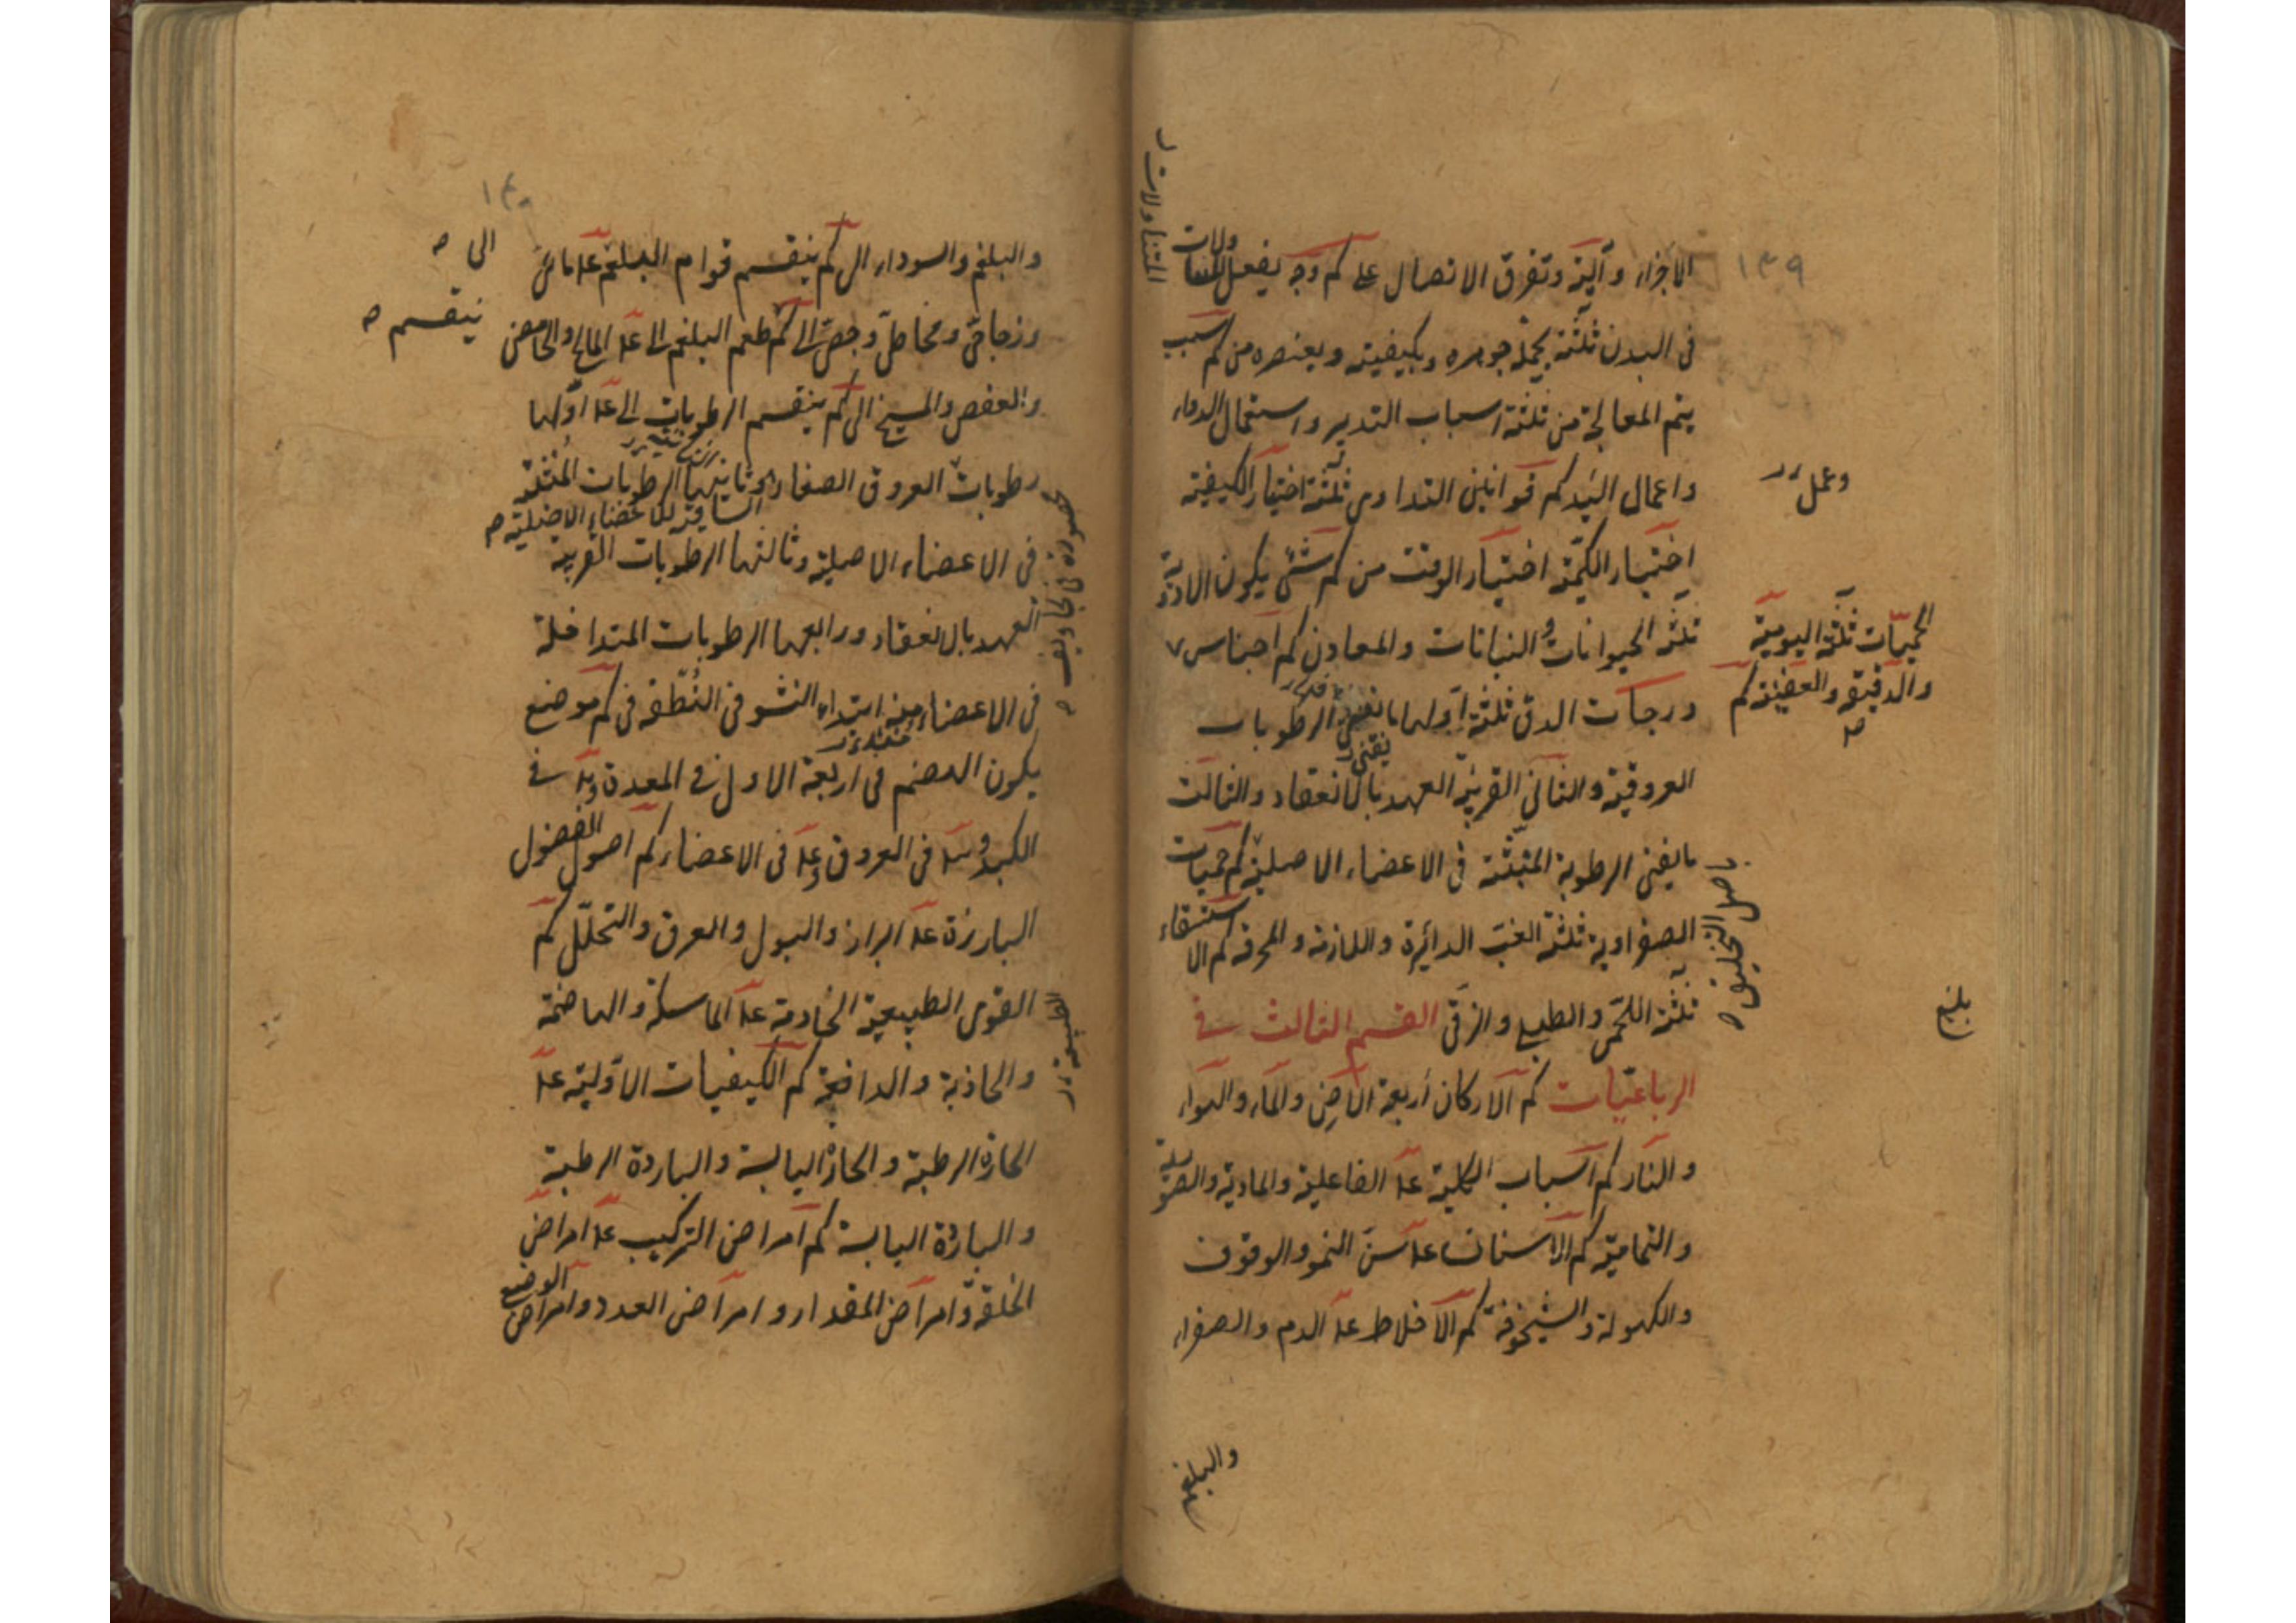 ١٣٩
الاجزاء وآلية وتفرق الاتصال على كم وجه يفعل المتناولات
فى البدن ثلثة بجملة جوهره وبكيفيته وبعنصره من كم سبب
يتم المعالجة من ثلثة اسباب التدبير واستعمال الدواء
واعمال اليد كم قوانين التداوى ثلثة اختيار الكيفية
وعمل
اختيار الكمّية اختيار الوقت من كم شئ يكون الادوية
ثلثة الحيوانات والنباتات والمعادن كم اجناس
الحميّات ثلثة اليومية
والدقية والعفنية كم
ودرجات الدق ثلثة اولها ما تفنى الرطوبات
العروقية والثانى القريبة العهد بالانعقاد والثالث
ما يفنى الرطوبة المنبثّة فى الاعضاء الاصلية كم حميات
الصفراوية ثلثة الغب الدائرة واللازمة والمحرقة كم الاستسقاء
ثلثة اللحمى والطبلى والزقى القسم الثالث فى
الرباعيّات كم الاركان أربعة الارض والماء والهواء
والنار كم اسباب الكلية عد الفاعلية والمادية والصورية
والتمامية كم الاسنان عد سنّ النمو والوقوف
والكهولة والشيخوخة كم الاخلاط عد الدم والصفراء
المتناولات
بلغ
والبلغم
١٤٠
والبلغم والسوداء الى كم ينقسم قوام البلغم عد مائى
الى
وزجاجى ومخاطى وجصى الى كم طعم البلغم الى عد المالح والحامض
ينقسم
والعفص والمسيخ الى كم ينقسم الرطوبات الى عد اوّلها
رطوبات العروق الصغار وثانيها الرطوبات المنبثة
فى الاعضاء الاصلية وثالثها الرطوبات القريبة
العهد بالانعقاد ورابعها الرطوبات المتداخلة
فى الاعضاء منذ ابتداء النشو فى النطفة فى كم موضع
يكون الهضم فى اربعة الاول فى المعدة وبد فى
الكبد وسد فى العروق وعد فى الاعضاء كم اصول الفضول
البارزة عد البراز والبول والعرق والتحلّل كم
القوى الطبيعية الخادمة عد الماسكة والهاضمة
والجاذبة والدافعة كم الكيفيات الاوّلية عد
الحارة الرطبة والحارة اليابسة والباردة الرطبة
والباردة اليابسة كم امراض التركيب عد امراض
الخلقة وامراض المقدار وامراض العدد وامراض الوضع